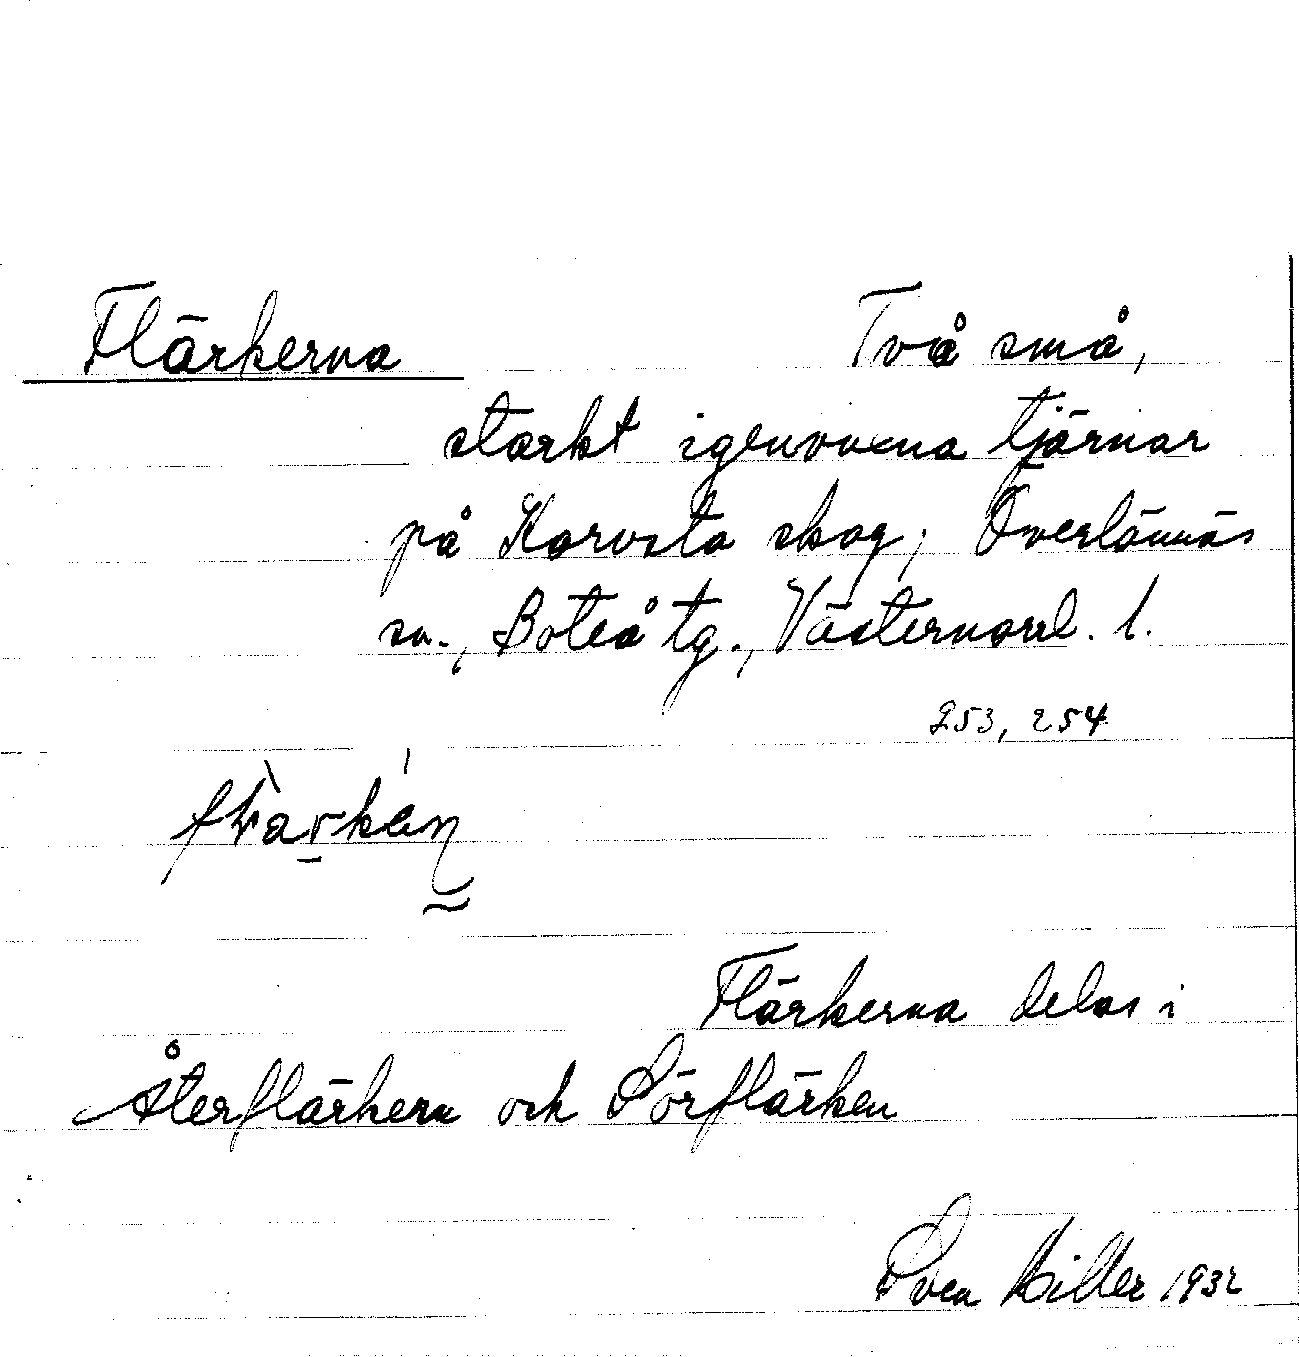 Flärkerna Två små,
starkt igenvuxna tjärnar
på Karvsta skog; Överlännäs
sn., Boteå tg., Västernorrl. l.
253, 254
Flärkerna delas i
Återflärkern och Sörflärken
Sven Hiller 1932